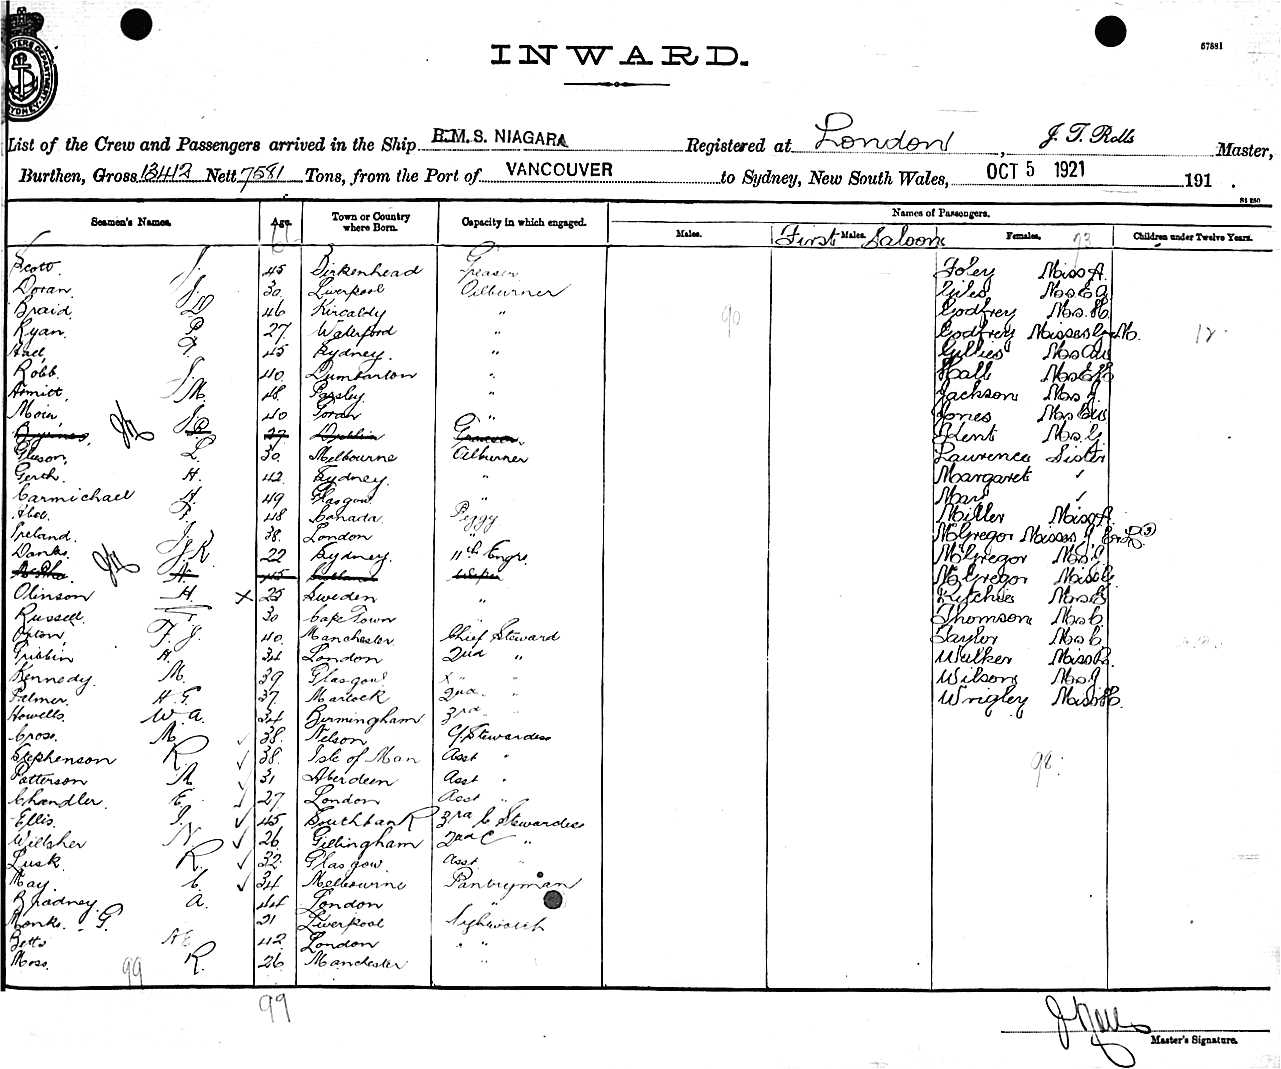 INWARD.
67881
List of the Crew and Passengers arrived in the Ship R.M.S. NIAGARA Registered at London, J. T. Rolls Master,
Burthen, Gross 13412 Nett 7581 Tons, from the Port of VANCOUVER to Sydney, New South Wales, OCT 5 1921 191 .
Seamen's Names. Age. Town or Country where Born. Capacity in which engaged. Names of Passengers.
Males. Males. Females. Children under Twelve Years.
First Saloon 93
Scott J. 45 Birkenhead Greaser Foley Miss A.
Doran J. 30 Liverpool Oilburner Giles Mrs E A
Braid D 46 Kircaldy " Godfrey Mrs. H.
Ryan P 27 Waterford " 90 Godfrey Misses G M. 12
45 Sydney. " Gillies Mrs
Robb. J. 40 Dumbarton " Hall Mrs E H
M. 48 Paisley " Jackson Mrs J.
Moir J. 40 " Jones Mrs
27 Dublin Greaser Kent Mrs. G.
Gleeson, L. 30 Melbourne Oilburner Lawrence Sister
Gerth H. 42 Sydney. " Margaret "
Carmichael H. 49 Glasgow " May "
F. 48 Canada Peggy Miller Miss A.
Ireland. J. 38 London " McGregor Misses J.
Danks J. R. 22 Sydney. 11th Engr. McGregor Mrs.
H. 45 McGregor Miss G
Olinson H. x 25 Sweden " Ritchie Mrs
Russell. 30 Cape Town Thomson Mrs C.
Orton F. J. 40 Manchester Chief Steward Taylor Mrs C.
Gribbin H. 34 London 2nd " Walker Miss R.
Kennedy. M. 39 Glasgow " Wilson Mrs. J
Palmer H G. 37 Matlock 2nd Wrigley Miss H.
Howells W. A. 34 Birmingham 3rd
Cross. M 38. Nelson C/Stewardess
Stephenson R 38. Isle of Man Asst " 92.
Patterson M 31 Aberdeen Asst "
Chandler. E. 27 London Asst "
Ellis. J. 45 Southbank 3rd C Stewardess
Willsher N. 26 Gillingham 2nd C "
Lusk R. 32 Glasgow Asst "
May. C. 34 Melbourne Pantryman
Bradney. A. 44 London "
Monks. G. 21 Liverpool
Betts A E. 42 London "
Moss. R. 26 Manchester "
99
99
J Rolls
Master's Signature.